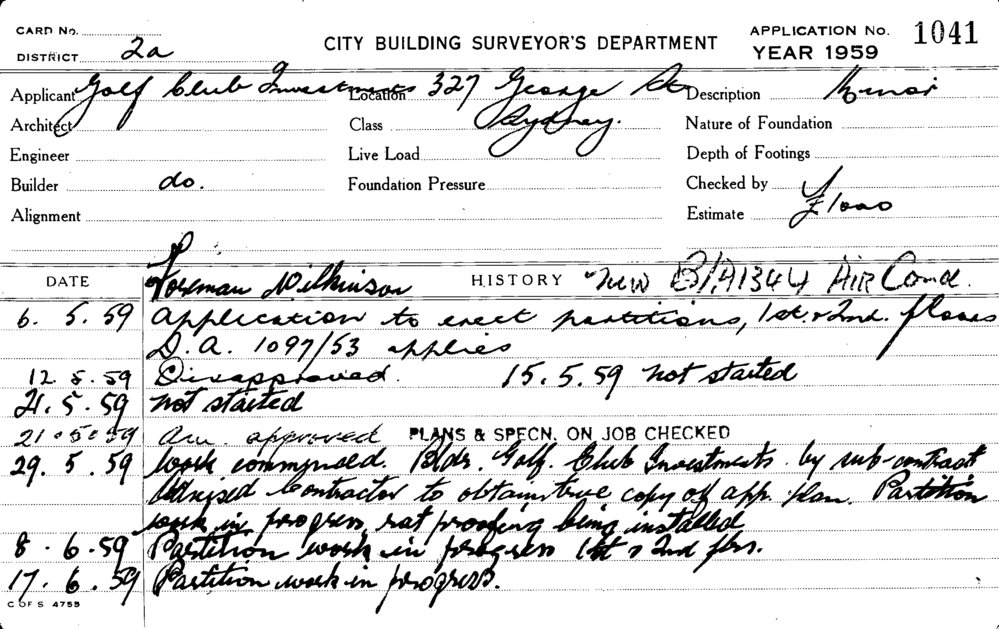 CARD No.
DISTRICT 2a
CITY BUILDING SURVEYOR'S DEPARTMENT
APPLICATION No. 1041
YEAR 1959
Applicant Golf Club Investments Location 327 George St Description Minor
Architect Class Sydney. Nature of Foundation
Engineer Live Load Depth of Footings
Builder do. Foundation Pressure Checked by
Alignment Estimate £1000
DATE Foreman Wilkinson HISTORY New B/A1344 Air Cond.
6. 5. 59 Application to erect partitions, 1st. & 2nd. floors
D.A. 1097/53 applies
12. 5. 59 Disapproved. 15. 5. 59 Not started
21. 5. 59 Not started
21. 5. 59 approved PLANS & SPECN. ON JOB CHECKED
29. 5. 59 Work commenced. Bldr. Golf. Club Investments. by sub-contract
Advised Contractor to obtain true copy of app. plan. Partition
work in progress, rat proofing being installed
8. 6. 59 Partition work in progress 1st & 2nd flrs.
17. 6. 59 Partition work in progress.
C OF S 4755